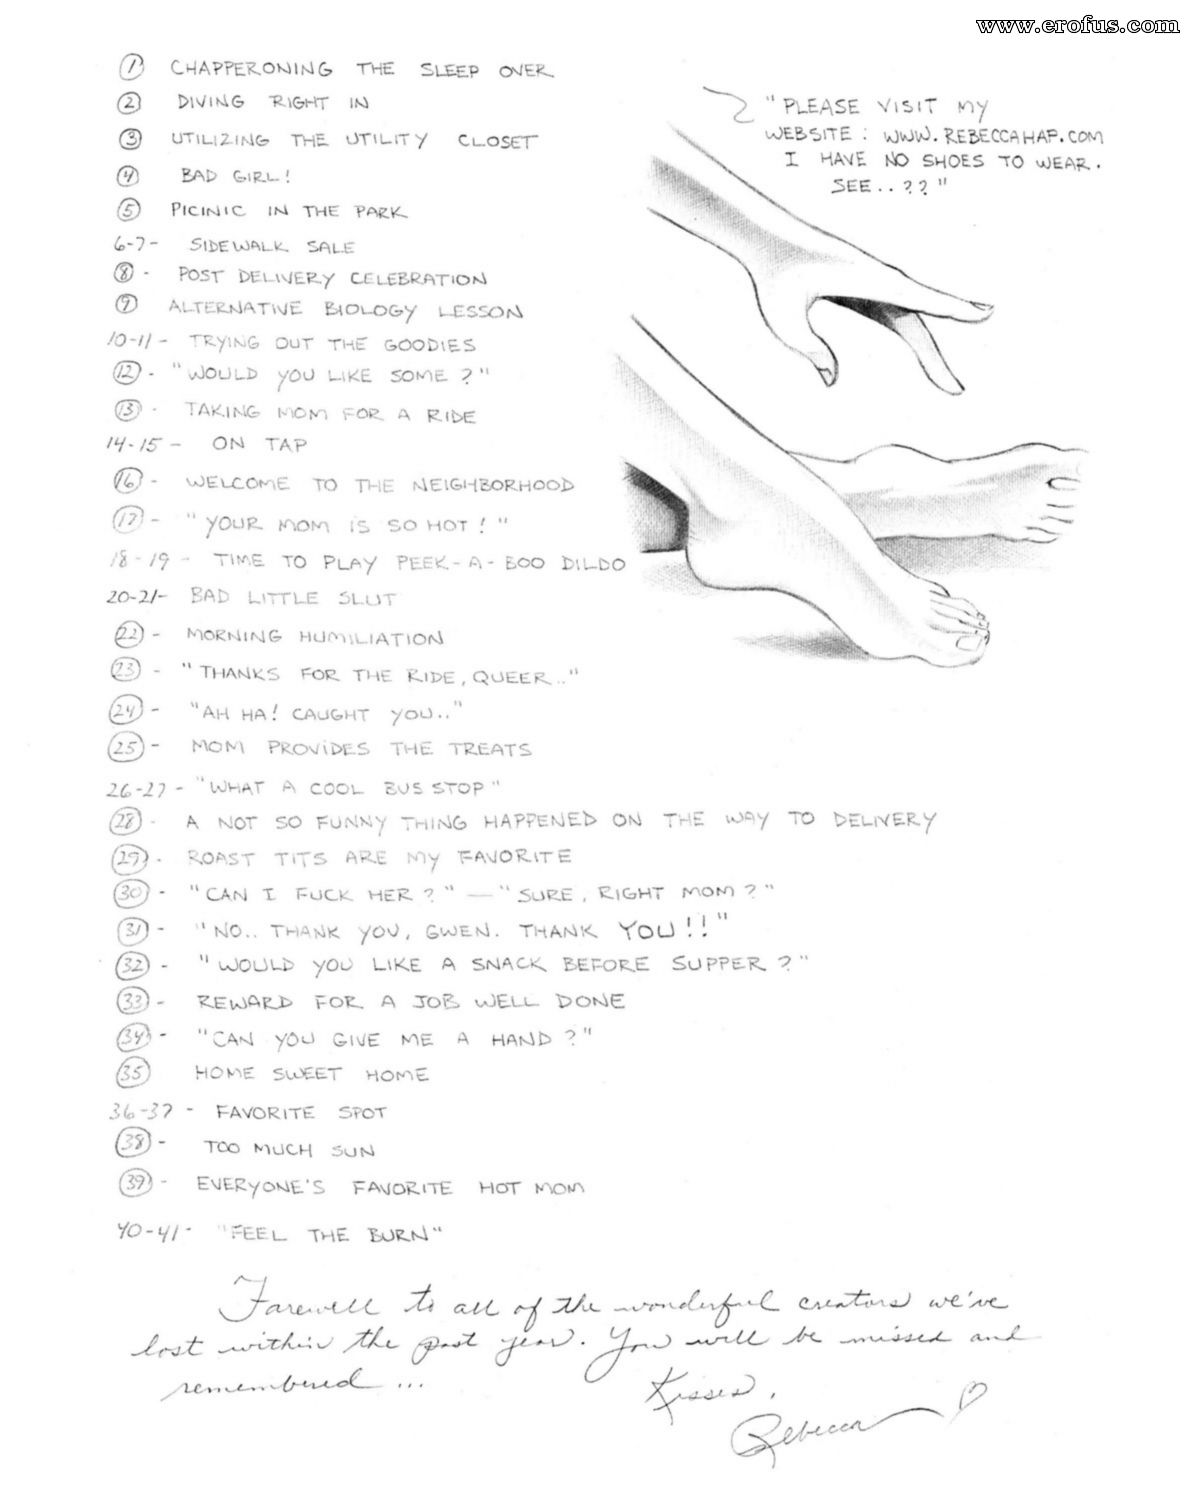 www.erofus.com
1 CHAPPERONING THE SLEEP OVER
2 DIVING RIGHT IN
3 UTILIZING THE UTILITY CLOSET
4 BAD GIRL!
5 PICINIC IN THE PARK
6-7- SIDEWALK SALE
8 - POST DELIVERY CELEBRATION
9 ALTERNATIVE BIOLOGY LESSON
10-11- TRYING OUT THE GOODIES
12 - "WOULD YOU LIKE SOME?"
13 - TAKING MOM FOR A RIDE
14-15 - ON TAP
16 - WELCOME TO THE NEIGHBORHOOD
17 - "YOUR MOM IS SO HOT!"
18-19 - TIME TO PLAY PEEK-A-BOO DILDO
20-21- BAD LITTLE SLUT
22 - MORNING HUMILIATION
23 - "THANKS FOR THE RIDE, QUEER.."
24 - "AH HA! CAUGHT YOU.."
25 - MOM PROVIDES THE TREATS
26-27 - "WHAT A COOL BUS STOP"
28 - A NOT SO FUNNY THING HAPPENED ON THE WAY TO DELIVERY
29 - ROAST TITS ARE MY FAVORITE
30 - "CAN I FUCK HER?" — "SURE, RIGHT MOM?"
31 - "NO.. THANK YOU, GWEN. THANK YOU!!"
32 - "WOULD YOU LIKE A SNACK BEFORE SUPPER?"
33 - REWARD FOR A JOB WELL DONE
34 - "CAN YOU GIVE ME A HAND?"
35 HOME SWEET HOME
36-37 - FAVORITE SPOT
38 - TOO MUCH SUN
39 - EVERYONE'S FAVORITE HOT MOM
40-41- "FEEL THE BURN"
"PLEASE VISIT MY
WEBSITE: WWW.REBECCAHAP.COM
I HAVE NO SHOES TO WEAR.
SEE..??"
Farewell to all of the wonderful creators we've
lost within the past year. You will be missed and
remembered ...
Kisses,
Rebecca